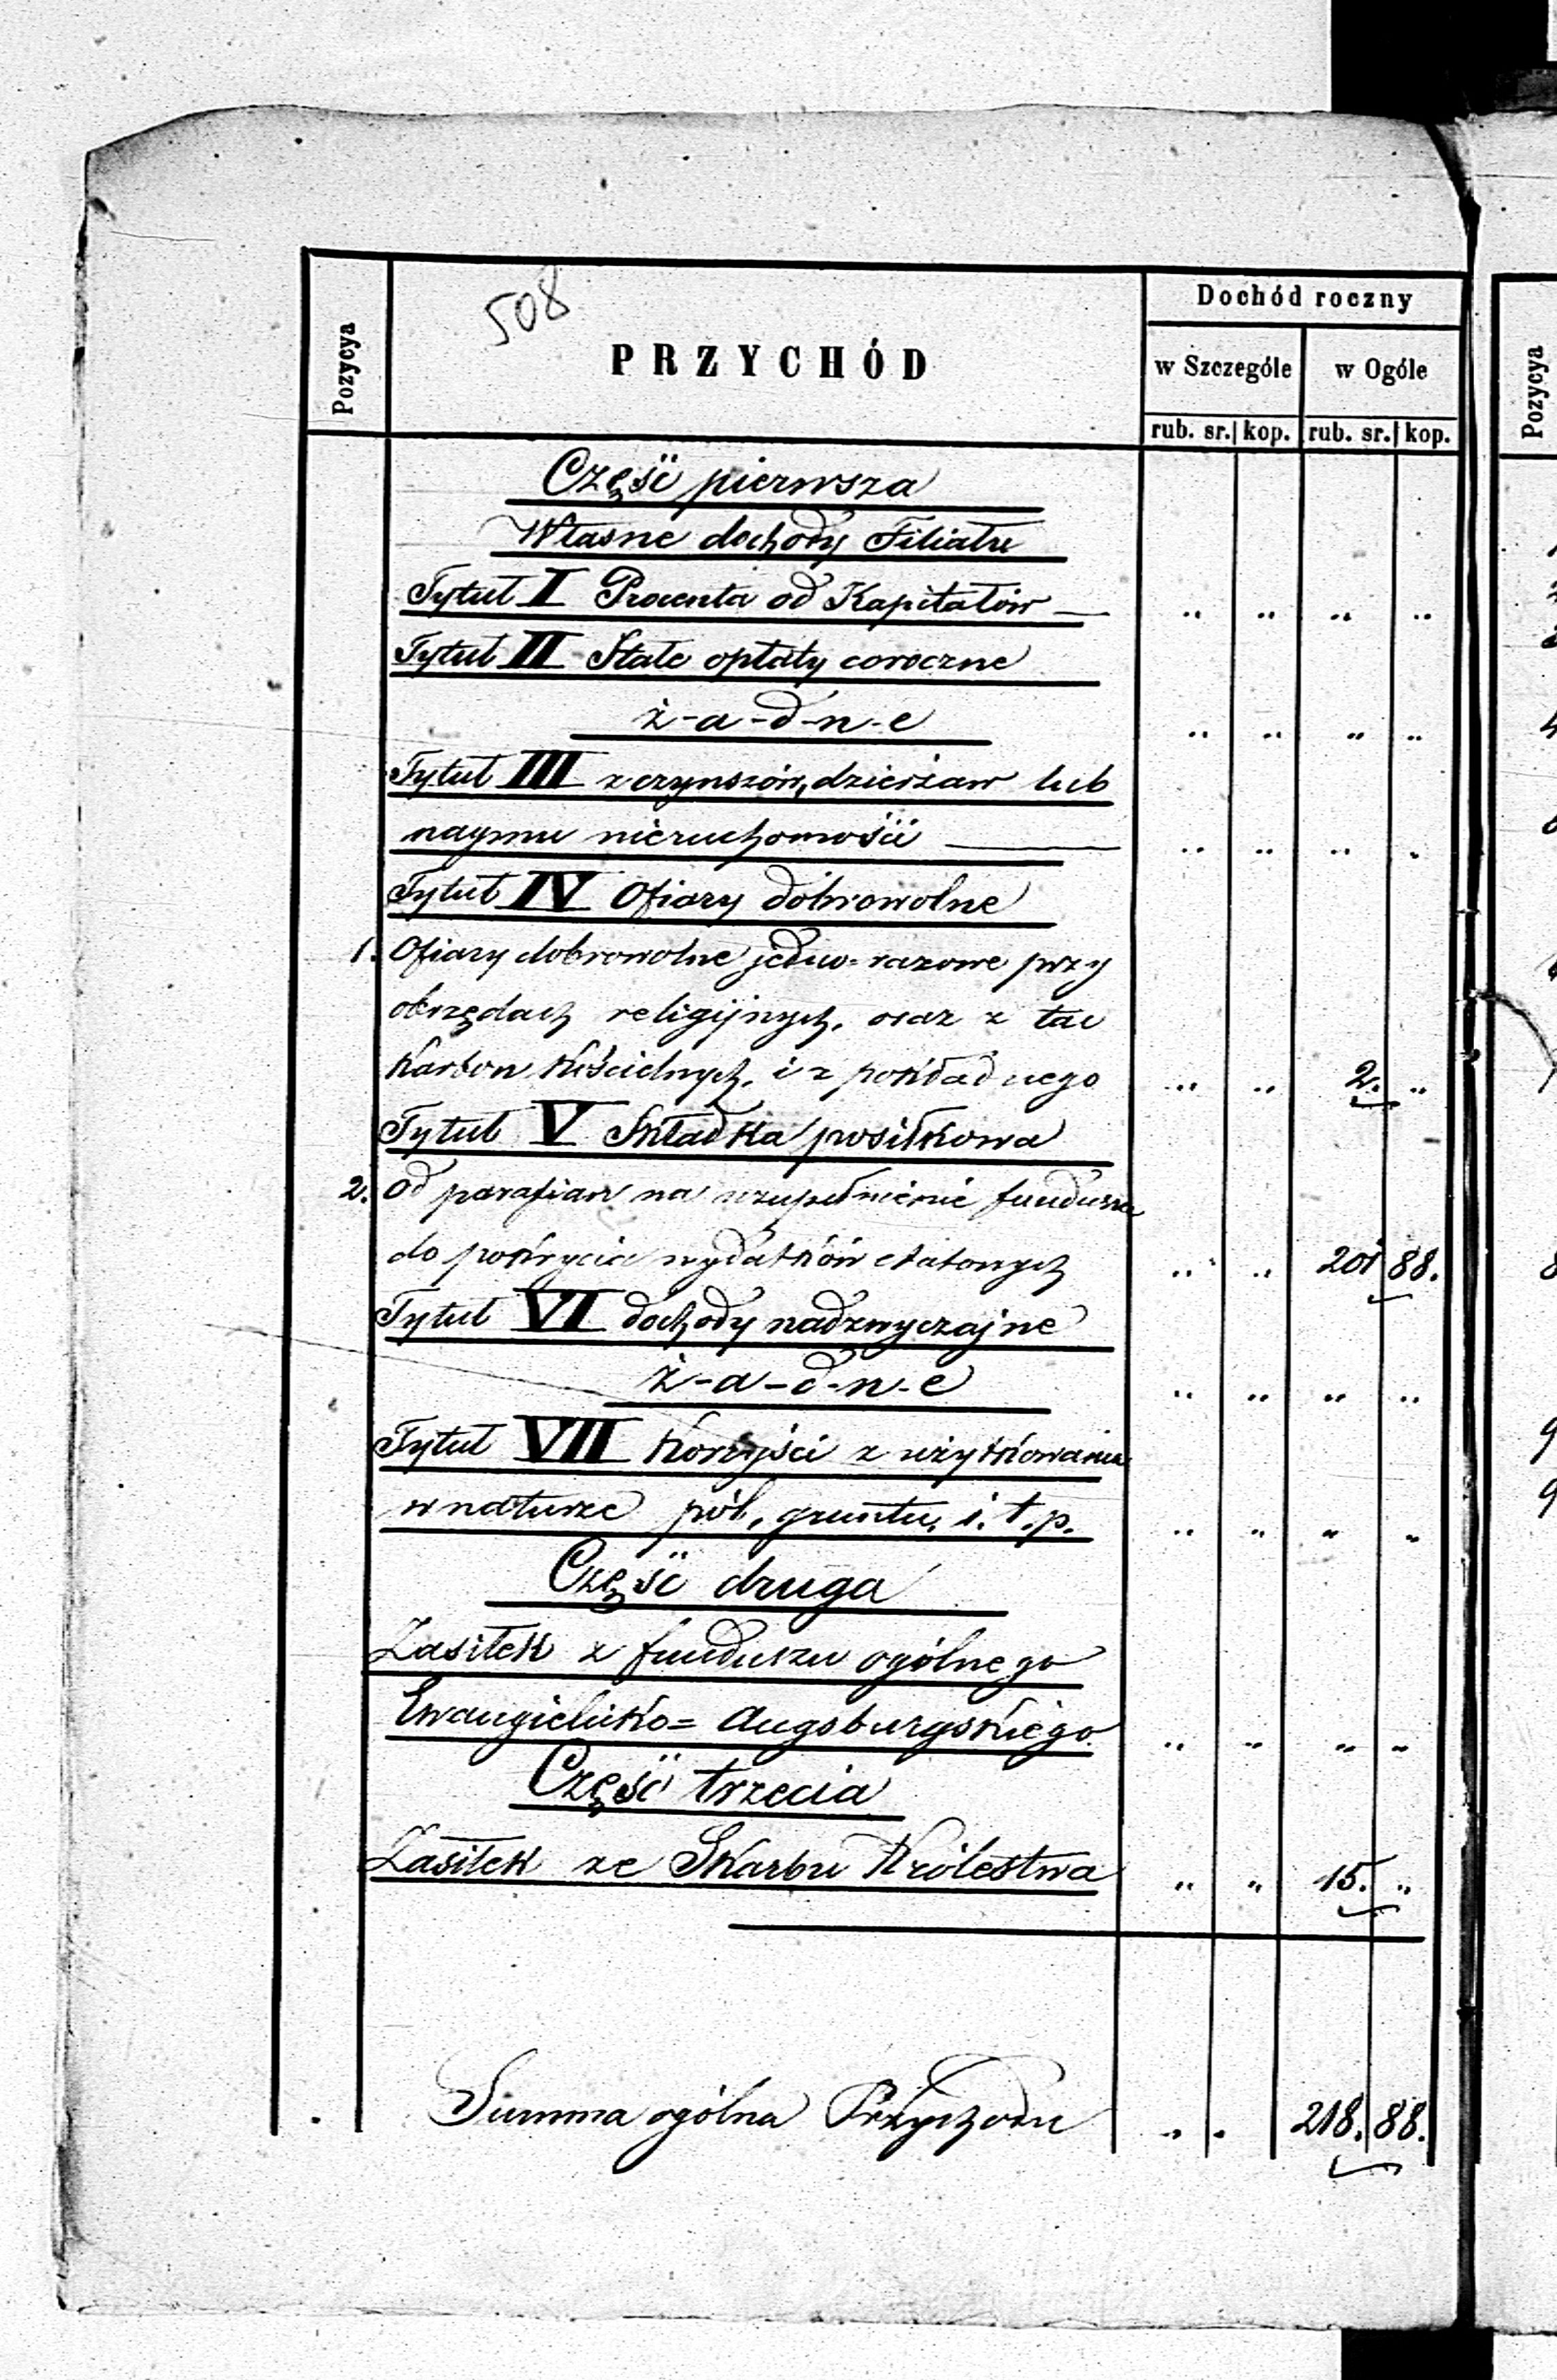 508
Pozycya
PRZYCHÓD
Dochód roczny
w Szczególe
w Ogóle
rub. sr. kop. rub. sr. kop.
Część pierwsza
Własne dochody Filiału
Tytuł I Procenta od Kapitałów —
Tytuł II Stałe opłaty coroczne
ż-a-d-n-e
Tytuł III z czynszów, dzierżaw lub
naymu nieruchomości —
Tytuł IV Ofiary dobrowolne
1. Ofiary dobrowolne jedno=razowe przy
obrzędach religijnych, oraz z tac
karbon kościelnych, i z pokładnego 2. „
Tytuł V Składka posiłkowa
2. od parafian na uzupełnienie funduszu
do pokrycia wydatków etatowych 201 88.
Tytuł VI dochody nadzwyczajne
ż-a-d-n-e
Tytuł VII Korzyści z użytkowania
w naturze pól, gruntu, i. t. p.
Część druga
Zasiłek z funduszu ogólnego
Ewangielicko= Augsburgskiego
Część trzecia
Zasiłek ze Skarbu Królestwa 15. „
Summa ogólna Przychodu 218. 88.
Pozycya